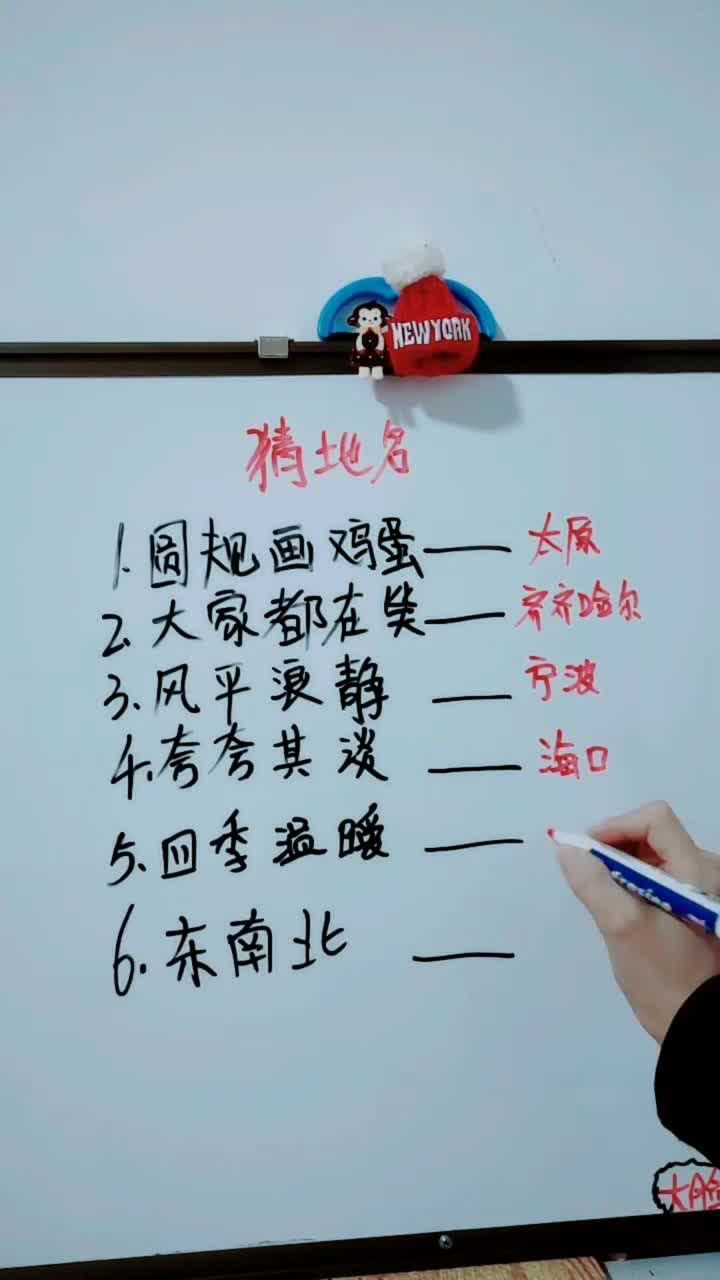 NEWYORK
猜地名
1.圆规画鸡蛋——太原
2.大家都在笑——齐齐哈尔
3.风平浪静——宁波
4.夸夸其谈——海口
5.四季温暖——
6.东南北——
大脸